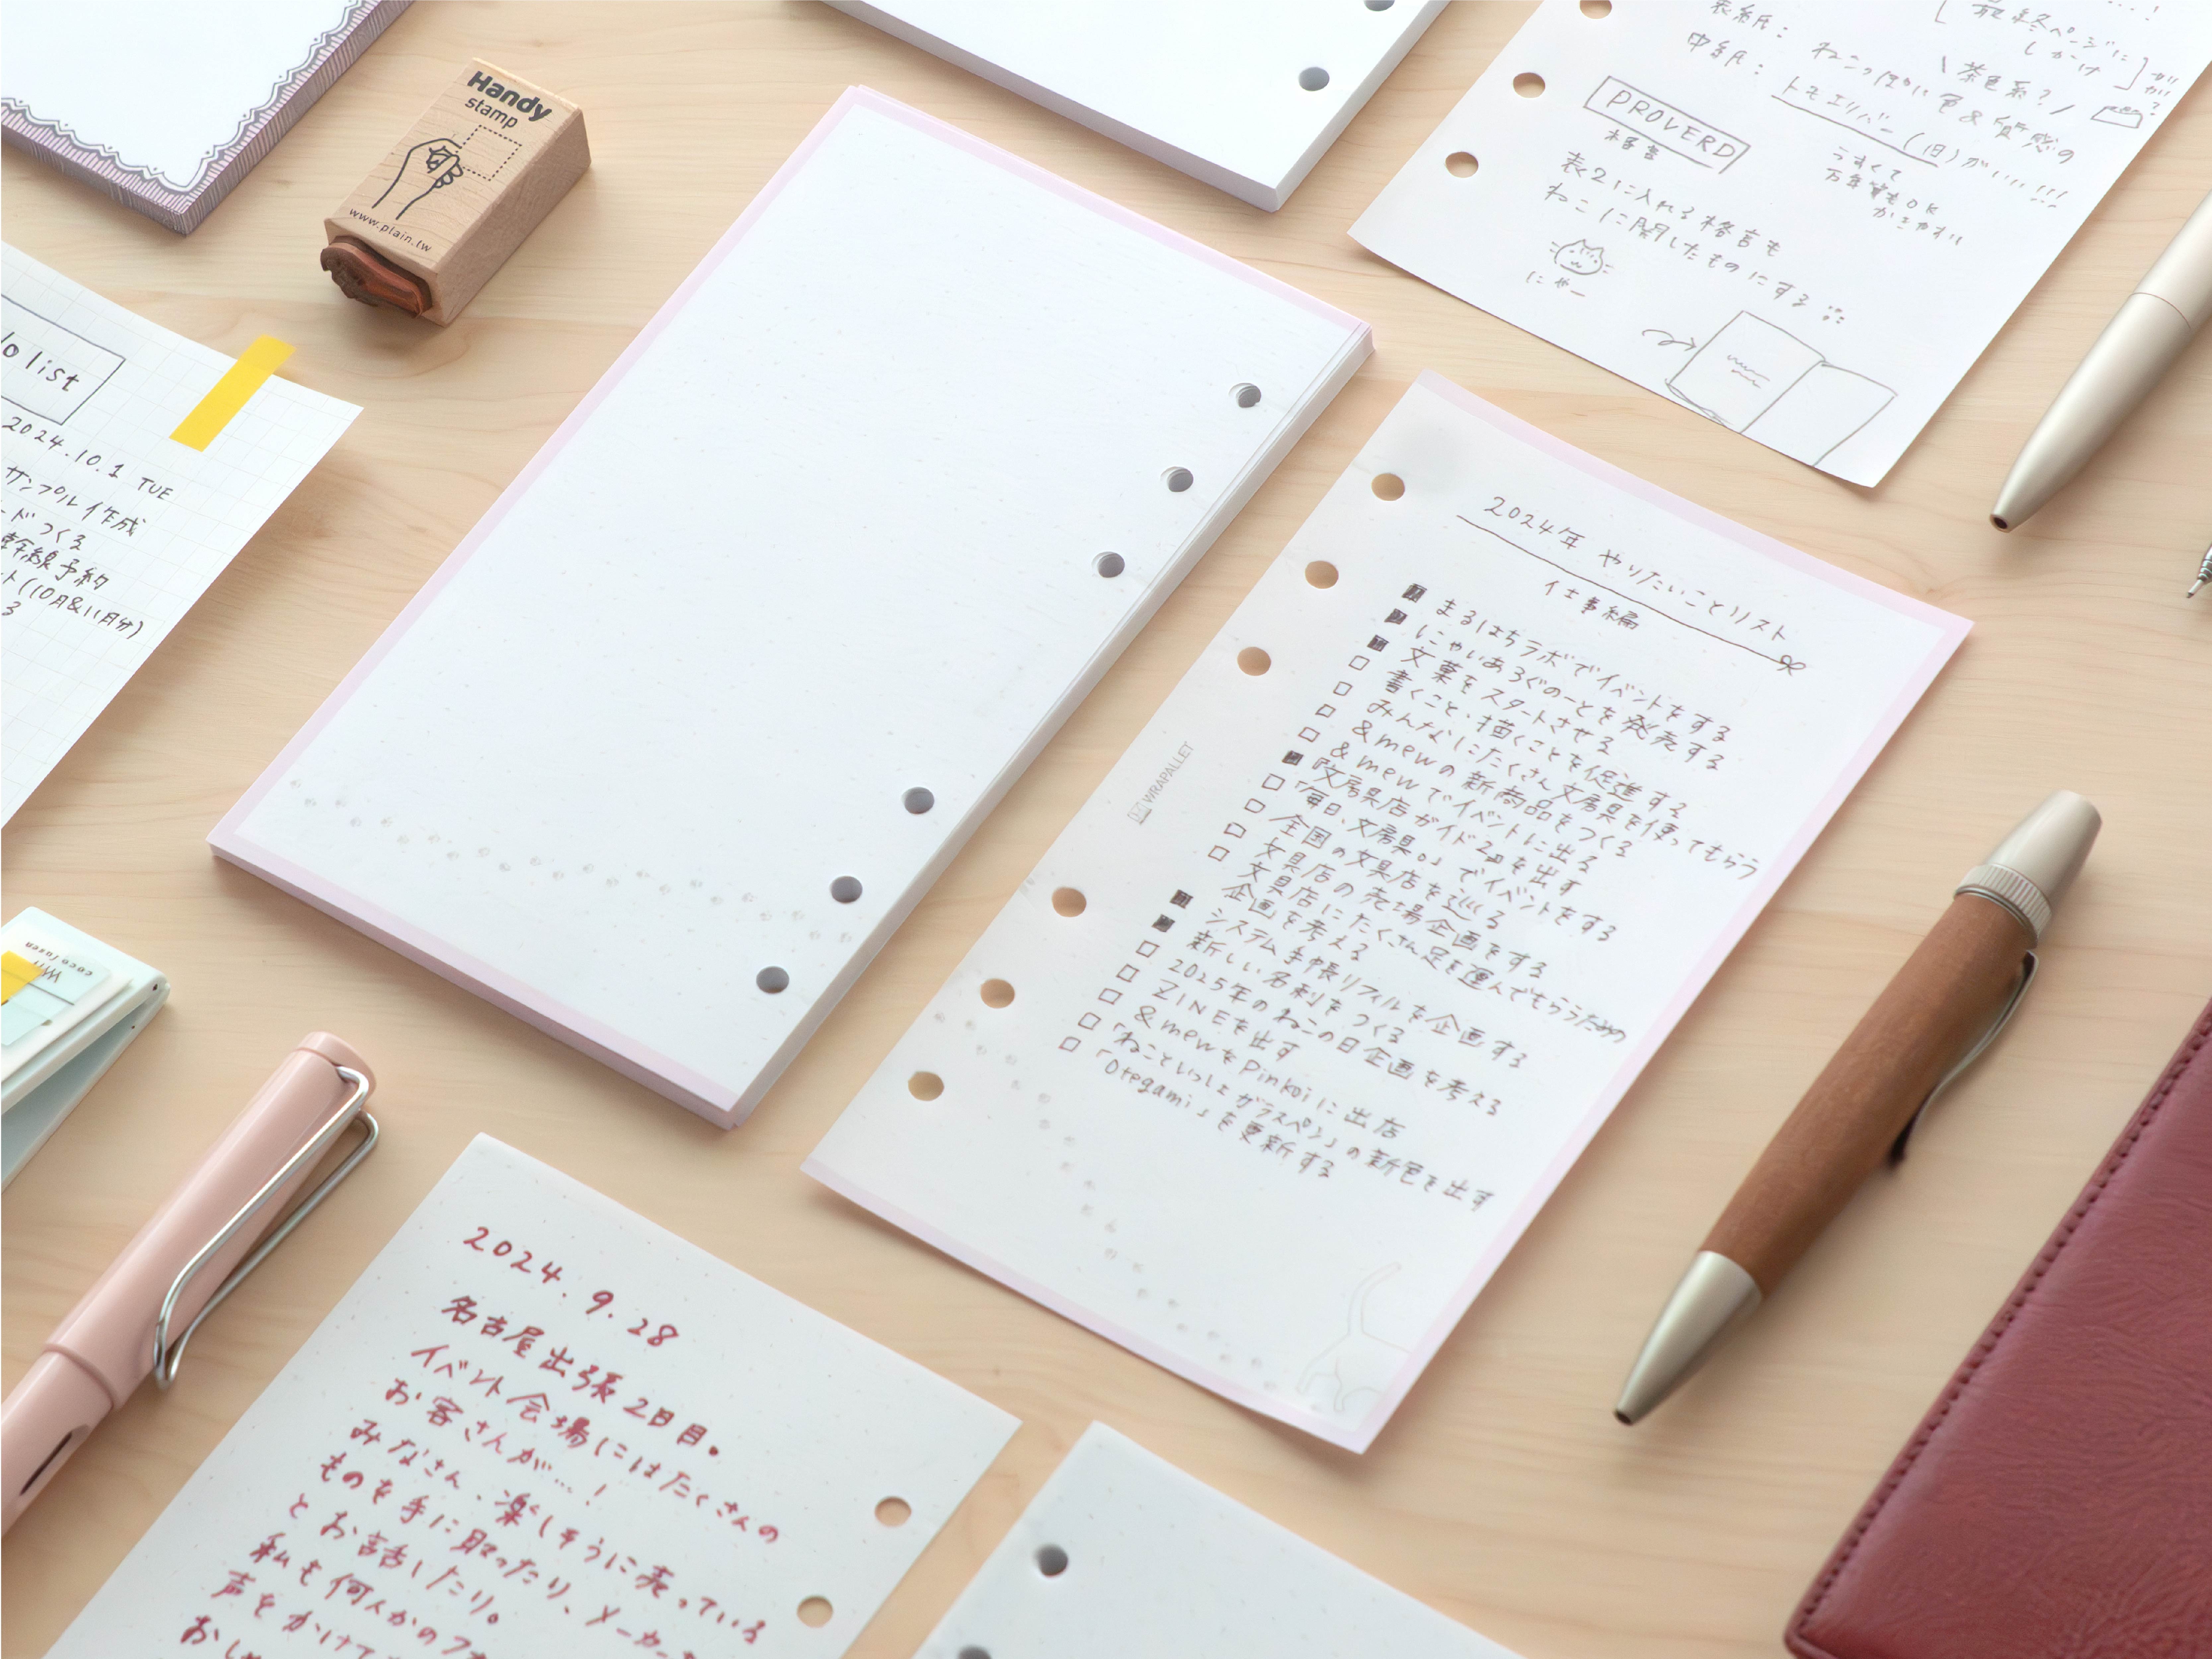 Handy
stamp
www.plain.tw
o list
2024.10.1 TUE
サンプル作成
ドつくる
幹線予約
ト(10月&11月分)
る
表紙:
最終ページに
しかけ
中紙:
ねこっぽい
色&質感の
\茶色系?/
トモエリバー(旧)がいい!!!
うすくて
万年筆もOK
PROVERD
格言
表2に入れる格言も
ねこに関したものにする
にゃー
2024年 やりたいことリスト
仕事編
まるはちラボでイベントをする
にゃいあろぐのーとを発売する
文菓をスタートさせる
書くこと・描くことを促進する
みんなにたくさん文房具を使ってもらう
&mewの新商品をつくる
&mewでイベントに出る
『文房具店ガイド2』を出す
「毎日、文房具。」でイベントをする
全国の文具店を巡る
文具店の売場企画をする
文具店にたくさん足を運んでもらうための
企画を考える
システム手帳リフィルを企画する
新しい名刺をつくる
2025年のねこの日企画を考える
ZINEを出す
&mewをPinkoiに出店
「ねこといっしょガラスペン」の新色を出す
「Otegami」を更新する
WRAPALLET
coco fusen
2024.9.28
名古屋出張2日目。
イベント会場にはたくさんの
お客さんが…!
みなさん、楽しそうに売っている
ものを手に取ったり、メーカー
とお話したり。
私も何人かのフォ
声をかけて
おし